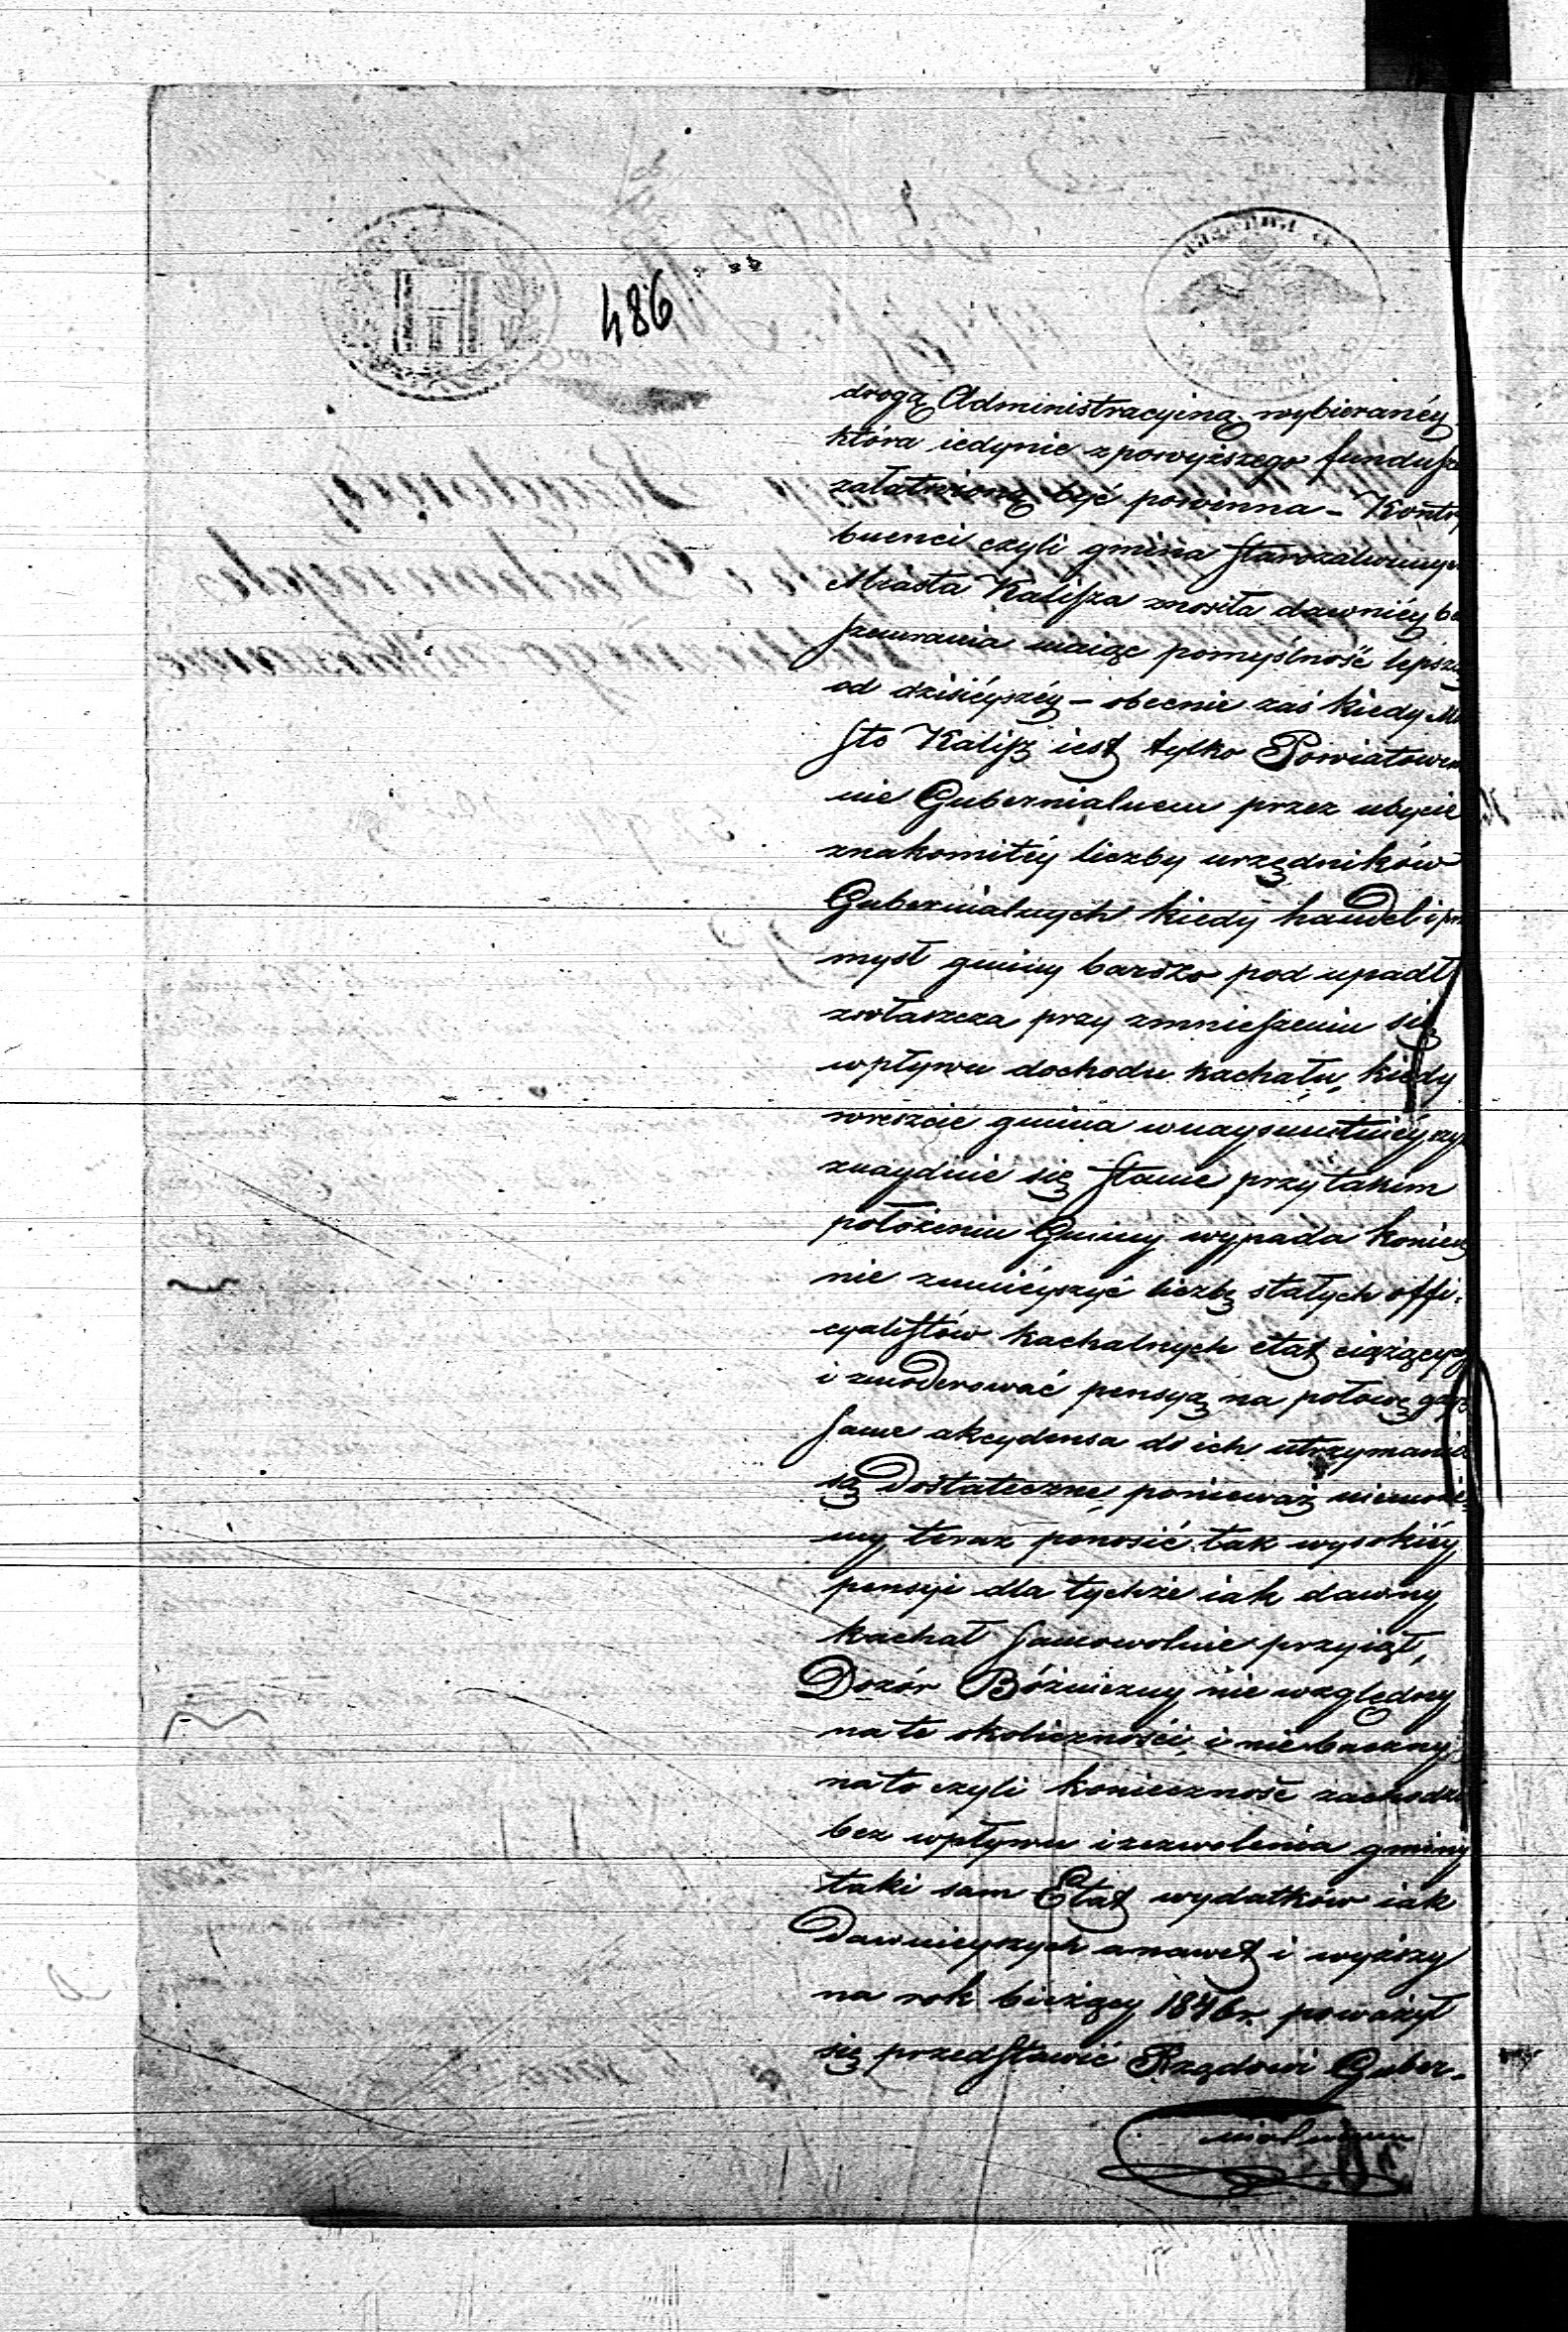 486
drogą Administracyiną wybieranéy
która iedynie z powyższego fundusz
załatwioną być powinna – Kontry
buenci czyli gmina Starozakonnych
Miasta Kalisza znosiła dawniéy be
szemrania maiąc pomyślność lepszą
od dzisiéyszéy – obecnie zaś kiedy Mia
sto Kalisz iest tylko Powiatowem
nie Gubernialnem przez ubycie
znakomitéy liczby urzędników
Gubernialnych kiedy handel i prze
mysł gminy barszo pod upadł
zwłaszcza przy zmnieszeniu się
wpływu dochodu kachału, kiedy
wreszcie gmina w naysmutniéyszy
znayduie się stanie przy takim
położeniu Gminy wypada koniecz
nie zmniéyszyć liczbę stałych offi-
cyalistów kachalnych etat ciążących
i zmoderować pensyą na połowę gdyż
same akcydensa do ich utrzymania
są dostateczne, ponieważ niemoże
my teraz ponosić tak wysokiéy
pensyi dla tychże iak dawny
kachał samowolnie przyiął,
Dozór Bóżniczny nie względny
na te okoliczności, i niebaczny
na to czyli konieczność zachodzi
bez wpływu i zezwolenia gminy
taki sam Etat wydatków iak
dawnieyszych a nawet i wyższy
na rok bieżący 1846r. poważył
się przedstawić Rządowi Guber-
nialnemu